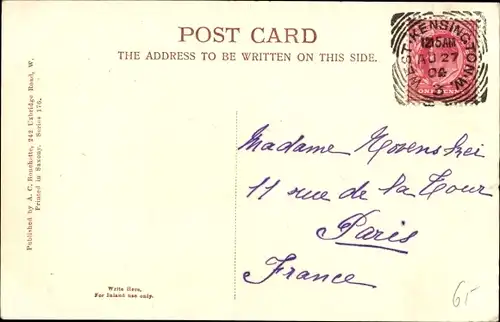 POST CARD
THE ADDRESS TO BE WRITTEN ON THIS SIDE.
WEST KENSINGTON.W.
12.15AM
AU 27
04
Published by A. C. Boschotte, 242 Uxbridge Road, W.
Printed in Saxony. Series 170.
Madame
11 rue de la Tour
Paris
France
Write Here,
For Inland use only.
65